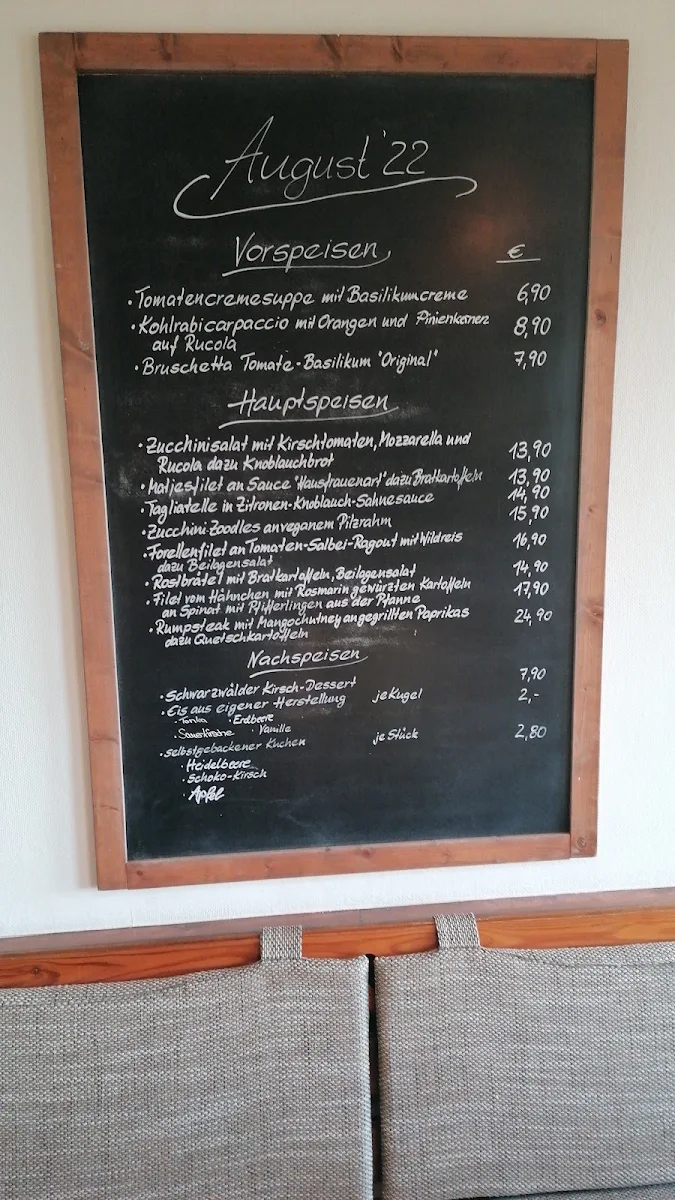 August '22
Vorspeisen €
• Tomatencremesuppe mit Basilikumcreme 6,90
• Kohlrabicarpaccio mit Orangen und Pinienkernen 8,90
auf Rucola
• Bruschetta Tomate-Basilikum "Original" 7,90
Hauptspeisen
• Zucchinisalat mit Kirschtomaten, Mozzarella und
Rucola dazu Knoblauchbrot 13,90
• Matjesfilet an Sauce "Hausfrauenart" dazu Bratkartoffeln 13,90
• Tagliatelle in Zitronen-Knoblauch-Sahnesauce 14,90
• Zucchini-Zoodles an veganem Pilzrahm 15,90
• Forellenfilet an Tomaten-Salbei-Ragout mit Wildreis 16,90
dazu Beilagensalat
• Rostbrätel mit Bratkartoffeln, Beilagensalat 14,90
• Filet vom Hähnchen mit Rosmarin gewürzten Kartoffeln 17,90
an Spinat mit Pfifferlingen aus der Pfanne
• Rumpsteak mit Mangochutney an gegrillten Paprikas 24,90
dazu Quetschkartoffeln
Nachspeisen
• Schwarzwälder Kirsch-Dessert 7,90
• Eis aus eigener Herstellung je Kugel 2,-
• Tonka • Erdbeere
• Sauerkirsche • Vanille
• selbstgebackener Kuchen je Stück 2,80
• Heidelbeere
• Schoko-Kirsch
• Apfel